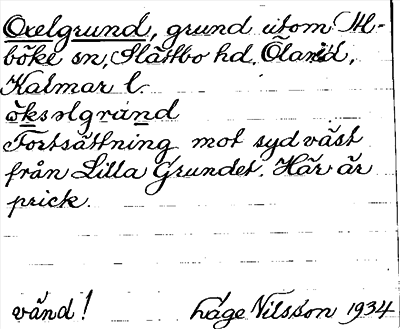 Oxelgrund, grund utom Al-
böke sn, Slättbo hd, Öland,
Kalmar l.
öksəlgrànd
Fortsättning mot sydväst
från Lilla Grundet. Här är
prick.
vänd! Åge Nilsson 1934